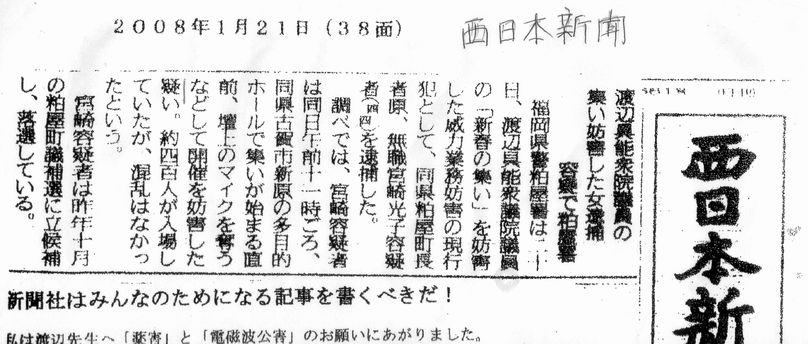 2008年1月21日(38面)
西日本新聞
渡辺具能衆院議員の
集い妨害した女逮捕
容疑で粕屋署
福岡県警粕屋署は二十
日、渡辺具能衆議院議員
の「新春の集い」を妨害
した威力業務妨害の現行
犯として、同県粕屋町長
者原、無職宮崎光子容疑
者(四四)を逮捕した。
調べでは、宮崎容疑者
は同日午前十一時ごろ、
同県古賀市新原の多目的
ホールで集いが始まる直
前、壇上のマイクを奪う
などして開催を妨害した
疑い。約四百人が入場し
ていたが、混乱はなかっ
たという。
宮崎容疑者は昨年十月
の粕屋町議補選に立候補
し、落選している。
西日本新
新聞社はみんなのためになる記事を書くべきだ!
私は渡辺先生へ「薬害」と「電磁波公害」のお願いにあがりました。